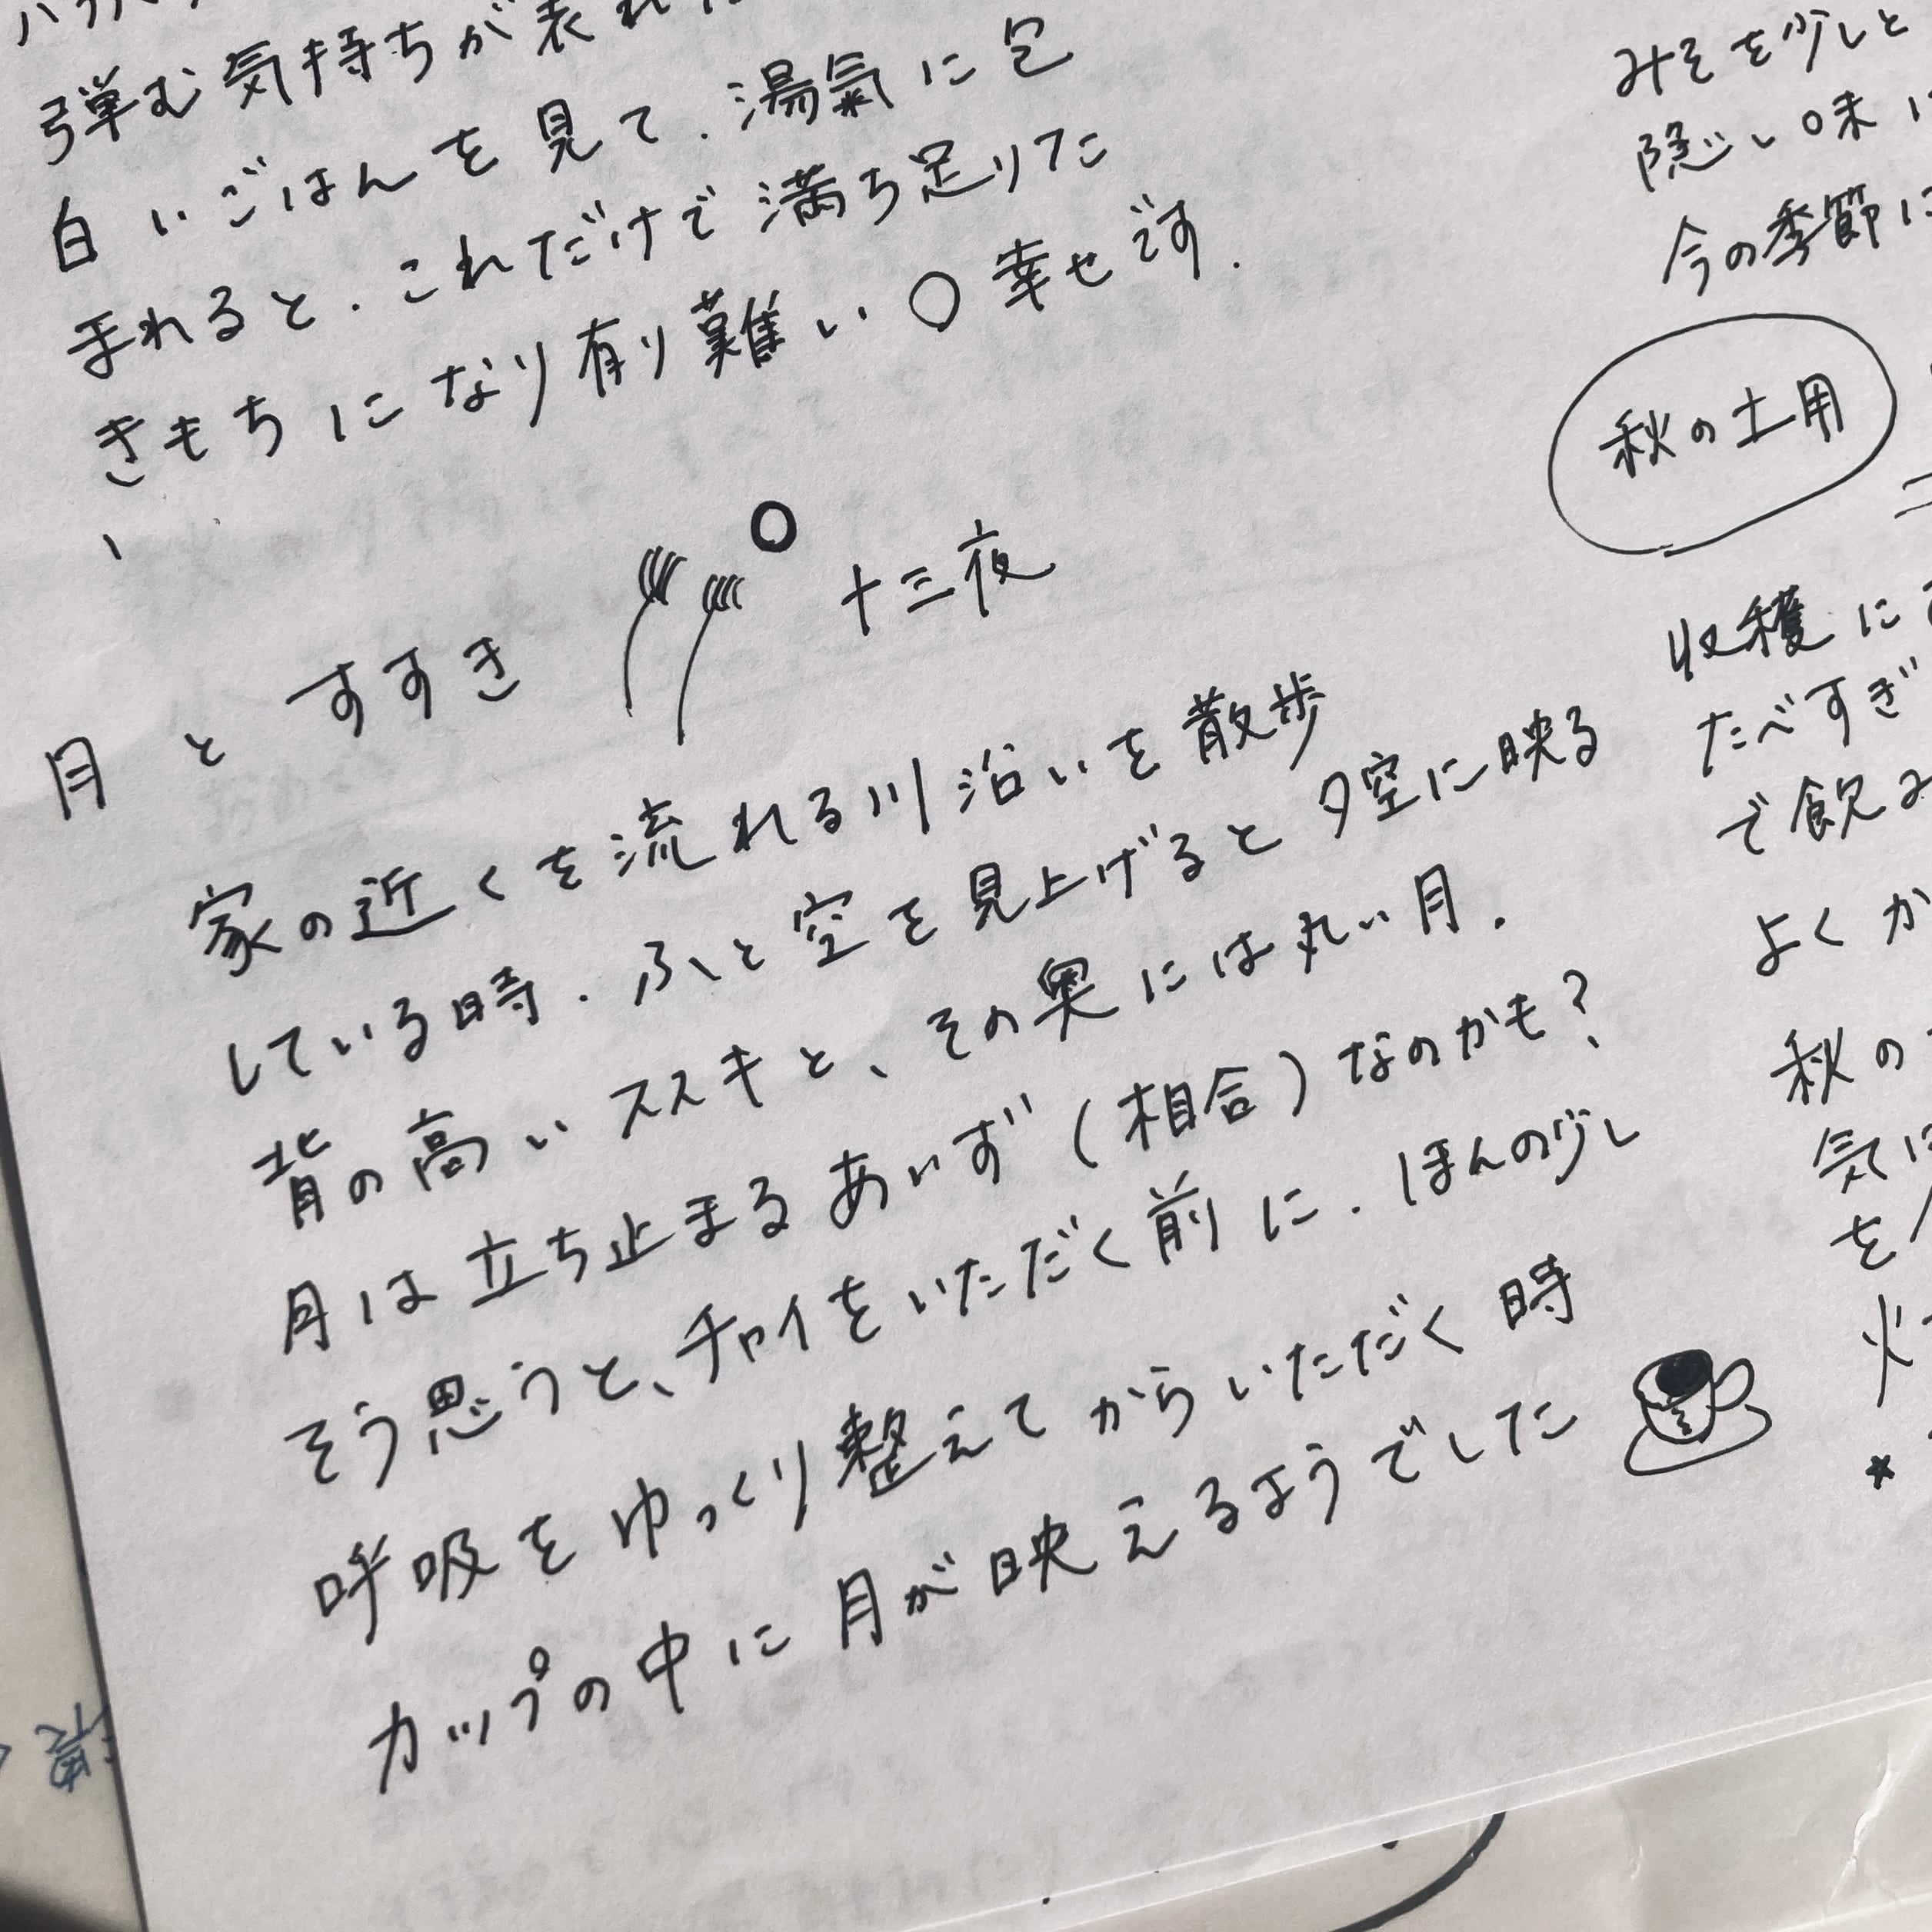 弾む気持ちが表れ
白いごはんを見て.湯氣に包
まれると.これだけで満ち足りた
きもちになり有り難い〇幸せです.
月とすすき 十三夜
家の近くを流れる川沿いを散歩
している時.ふと空を見上げると夕空に映る
背の高いススキと、その奥には丸い月.
月は立ち止まるあいず(相合)なのかも?
そう思うと、チャイをいただく前に.ほんの少し
呼吸をゆっくり整えてからいただく時
カップの中に月が映えるようでした
みそを少しと
隠し味に
今の季節に
秋の土用
収穫に
たべすぎ
で飲み
よくか
秋の
気は
を
火